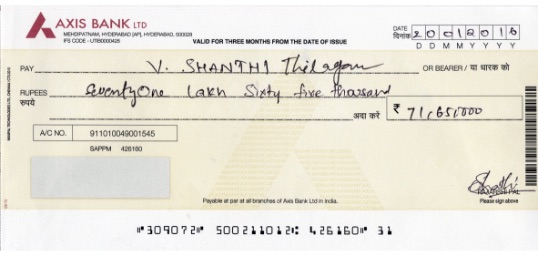 AXIS BANK LTD
MEHDIPATNAM, HYDERABAD [AP], HYDERABAD, 500028
IFS CODE - UTIB0000426
VALID FOR THREE MONTHS FROM THE DATE OF ISSUE
DATE दिनांक 20012016
D D M M Y Y Y Y
PAY V. SHANTHI Thilagam OR BEARER / या धारक को
RUPEES रुपये Seventy One Lakh Sixty five thousand
अदा करें ₹ 71,65,000
A/C NO. 911010049001545
SAPPM 426160
Payable at par at all branches of Axis Bank Ltd in India.
Please sign above
⑈309072⑈ 500211012⑆ 426160⑈ 31